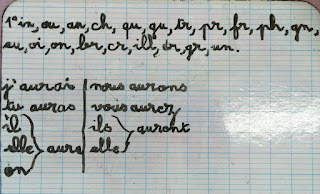 1° in, ou, an, ch, qu, gu, tr, pr, fr, ph, gn,
eu, oi, on, br, cr, ill, dr, gr, un.
j'aurai nous aurons
tu auras vous aurez
il ils
elle aura elle auront
on